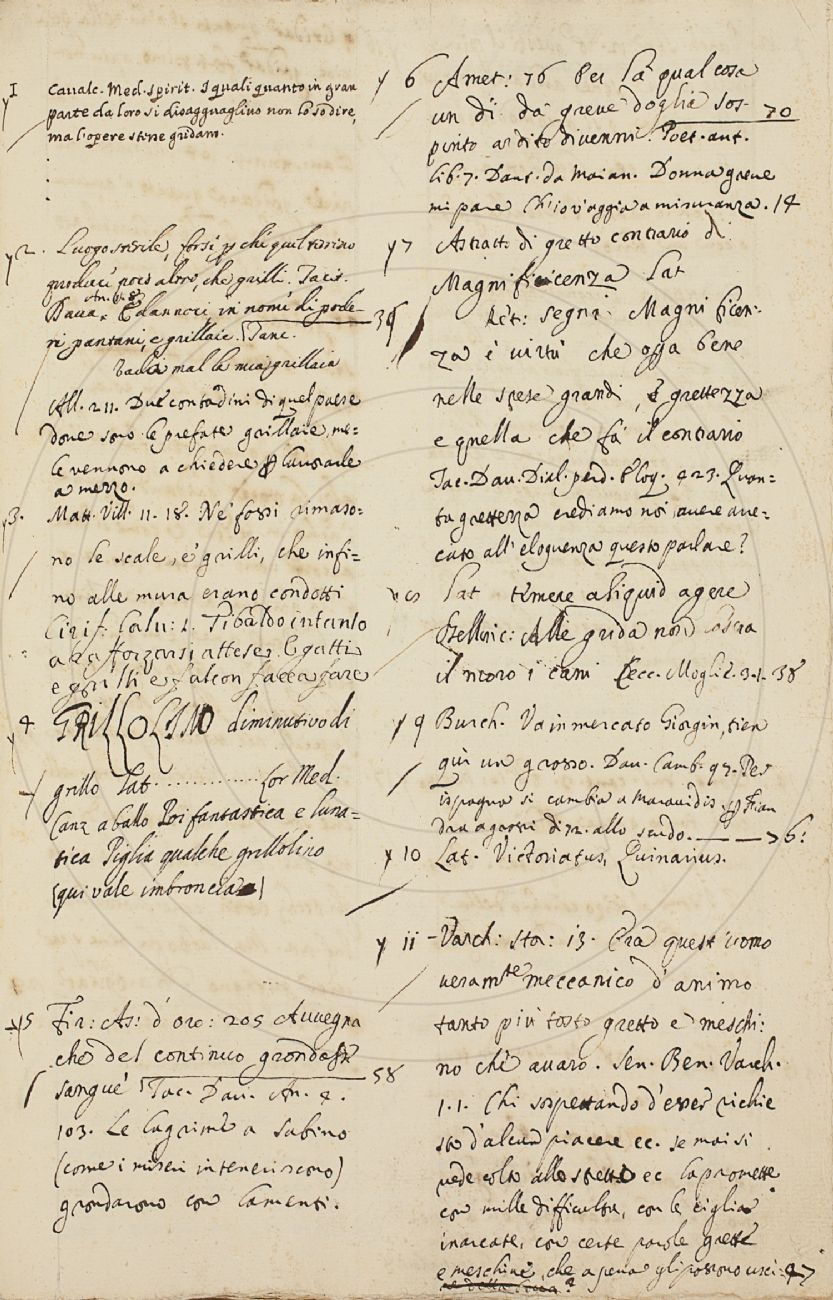 1 Cavalc. Med. spirit. I quali quanto in gran
parte da loro si disagguaglino non lo so dire,
ma l'opere stene gridam.
2. Luogo sterile, forsi chi quel terrino
produci poco altro, che grilli. Tacit.
An. 
Dava. E dannosi in nomi di pode- 36
ri pantani, e grillaie.
Vada mal la mia grillaia
All. 211. Due contadini di quel paese
dove sono le prefate grillaie, me=
le vennono a chiedere lavorarle
a mezzo.
3. Matt. Vill. 11. 18. Ne' fossi rimaso=
no le scale, e' grilli, che infi=
no alle mura erano condotti
Cirif. Calv: 1. Tibaldo intanto
a rafforzarsi attese, E gatti
e grilli e falcon facea fare
4 GRILLOLINO diminutivo di
grillo Lat. ............. Lor. Med.
Canz a ballo Poi fantastica e luna=
tica Piglia qualche grillolino
(qui vale imbroncia)
5 Fir: As: d'oro: 205 Avvegna
che del continuo grondasse
sangue Tac. Dav. An. 4. 58
103. Le lagrime a Sabino
(come i miseri inteneriscono)
grondarono con lamenti.
6 Amet: 76 Per la qual cosa
un dì da greve doglia sos- 70
pinto ardito divenni. Poet. ant.
lib. 7. Dant. da Maian. Donna greve
mi pare Ch'io v'aggia a minuanza. 14
7 Astratt. di gretto contrario di
Magnificenza Lat
Ret: Segni. Magnificen-
za è virtù che opra bene
nelle spese grandi, e grettezza
e quella che fà il contrario
Tac. Dav. Dial. perd. eloq. 423. Quan=
ta grettezza crediamo noi, avere arre=
cato all'eloquenza questo parlare?
Lat temere aliquid agere
Alle grida non corra
il moro i cani Cecc. Moglie. 3. 1. 38
9 Burch. Va in mercato Giorgin, tien
qui un grosso. Dav. Camb. 97. Per
ispagna si cambia a Maravidis.
dra a grossi di 72. allo scudo. 6:
10 Lat. Victoriatus, Quinarius.
11 - Varch: Sto: 13. Era quest'uomo
veramte meccanico d'animo
tanto più tosto gretto e meschi:
no che avaro. Sen. Ben. Varch.
1. 1. Chi sospettando d'esser richie
sto d'alcun piacere ec. se mai si
vede colto allo stretto ec la promette
con mille difficultà, con le ciglia
inarcate, con certe parole grette
e meschine, che a pena gli possono usci- 47
re della bocca?